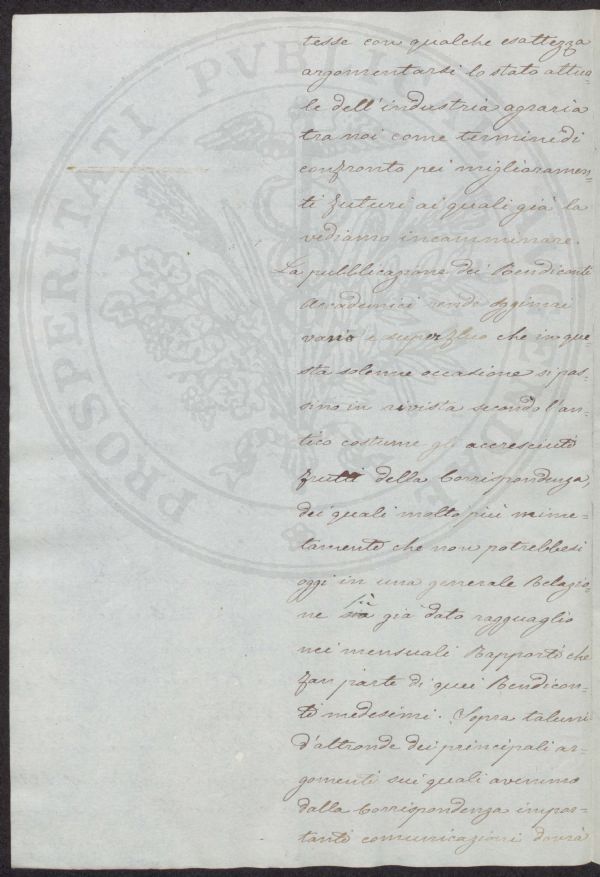 tesse con qualche esattezza
argomentarsi lo stato attua=
le dell'industria agraria
tra noi come termine di
confronto pei miglioramen=
ti futuri ai quali già la
vediamo incamminare.
La pubblicazione dei Rendiconti
Accademici rende oggimai
vano e superfluo che in que=
sta solenne occasione si pas=
sino in rivista secondo l'an=
tico costume gli accresciuti
frutti della Corrispondenza,
dei quali molto più minu=
tamente che non potrebbesi
oggi in una generale Relazio=
ne si è già dato ragguaglio
nei mensuali Rapporti che
fan parte di quei Rendicon=
ti medesimi. Sopra taluni
d'altronde dei principali ar=
gomenti sui quali avemmo
dalla Corrispondenza impor=
tanti comunicazioni dovrà
PROSPERITATI PVBLICAE AVGENDAE